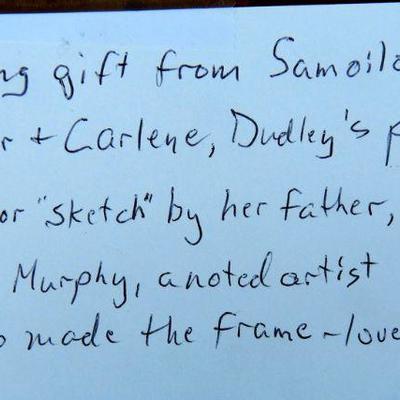 ng gift from Samoilo
r + Carlene, Dudley's p
or "sketch" by her father,
Murphy, a noted artist
o made the frame - love